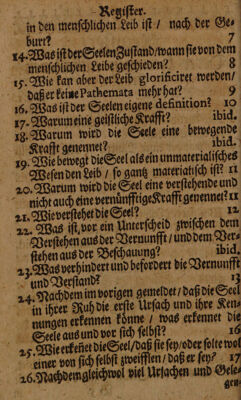 Register.
in den menschlichen Leib ist / nach der Ge-
burt? 7
14. Was ist der Seelen Zustand / wann sie von dem
menschlichen Leibe geschieden? 8
15. Wie kan aber der Leib glorificiret werden /
daß er keine Pathemata mehr hat? 9
16. Was ist der Seelen eigene definition? 10
17. Warum eine geistliche Krafft? ibid.
18. Warum wird die Seele eine bewegende
Krafft genennet? ibid.
19. Wie bewegt die Seel als ein unmaterialisches
Wesen den Leib / so gantz materialisch ist? 11
20. Warum wird die Seel eine verstehende und
nicht auch eine vernünfftige Krafft genennet? 11
21. Wie verstehet die Seel? 12
22. Was ist, vor ein Unterscheid zwischen dem
Verstehen aus der Vernunfft / und dem Ver-
stehen aus der Beschauung? ibid.
23. Was verhindert und befordert die Vernunfft
und Verstand? 13
24. Nachdem im vorigen gemeldet / daß die Seel
in ihrer Ruh die erste Ursach und ihre Ken-
nungen erkennen könne / was erkennet die
Seele aus und vor sich selbst? 16
25. Wie erkeñet die Seel / daß sie sey / oder solte wol
einer von sich selbst zweifflen / daß er sey? 17
26. Nachdem gleichwol viel Ursachen und Gele-
gen-